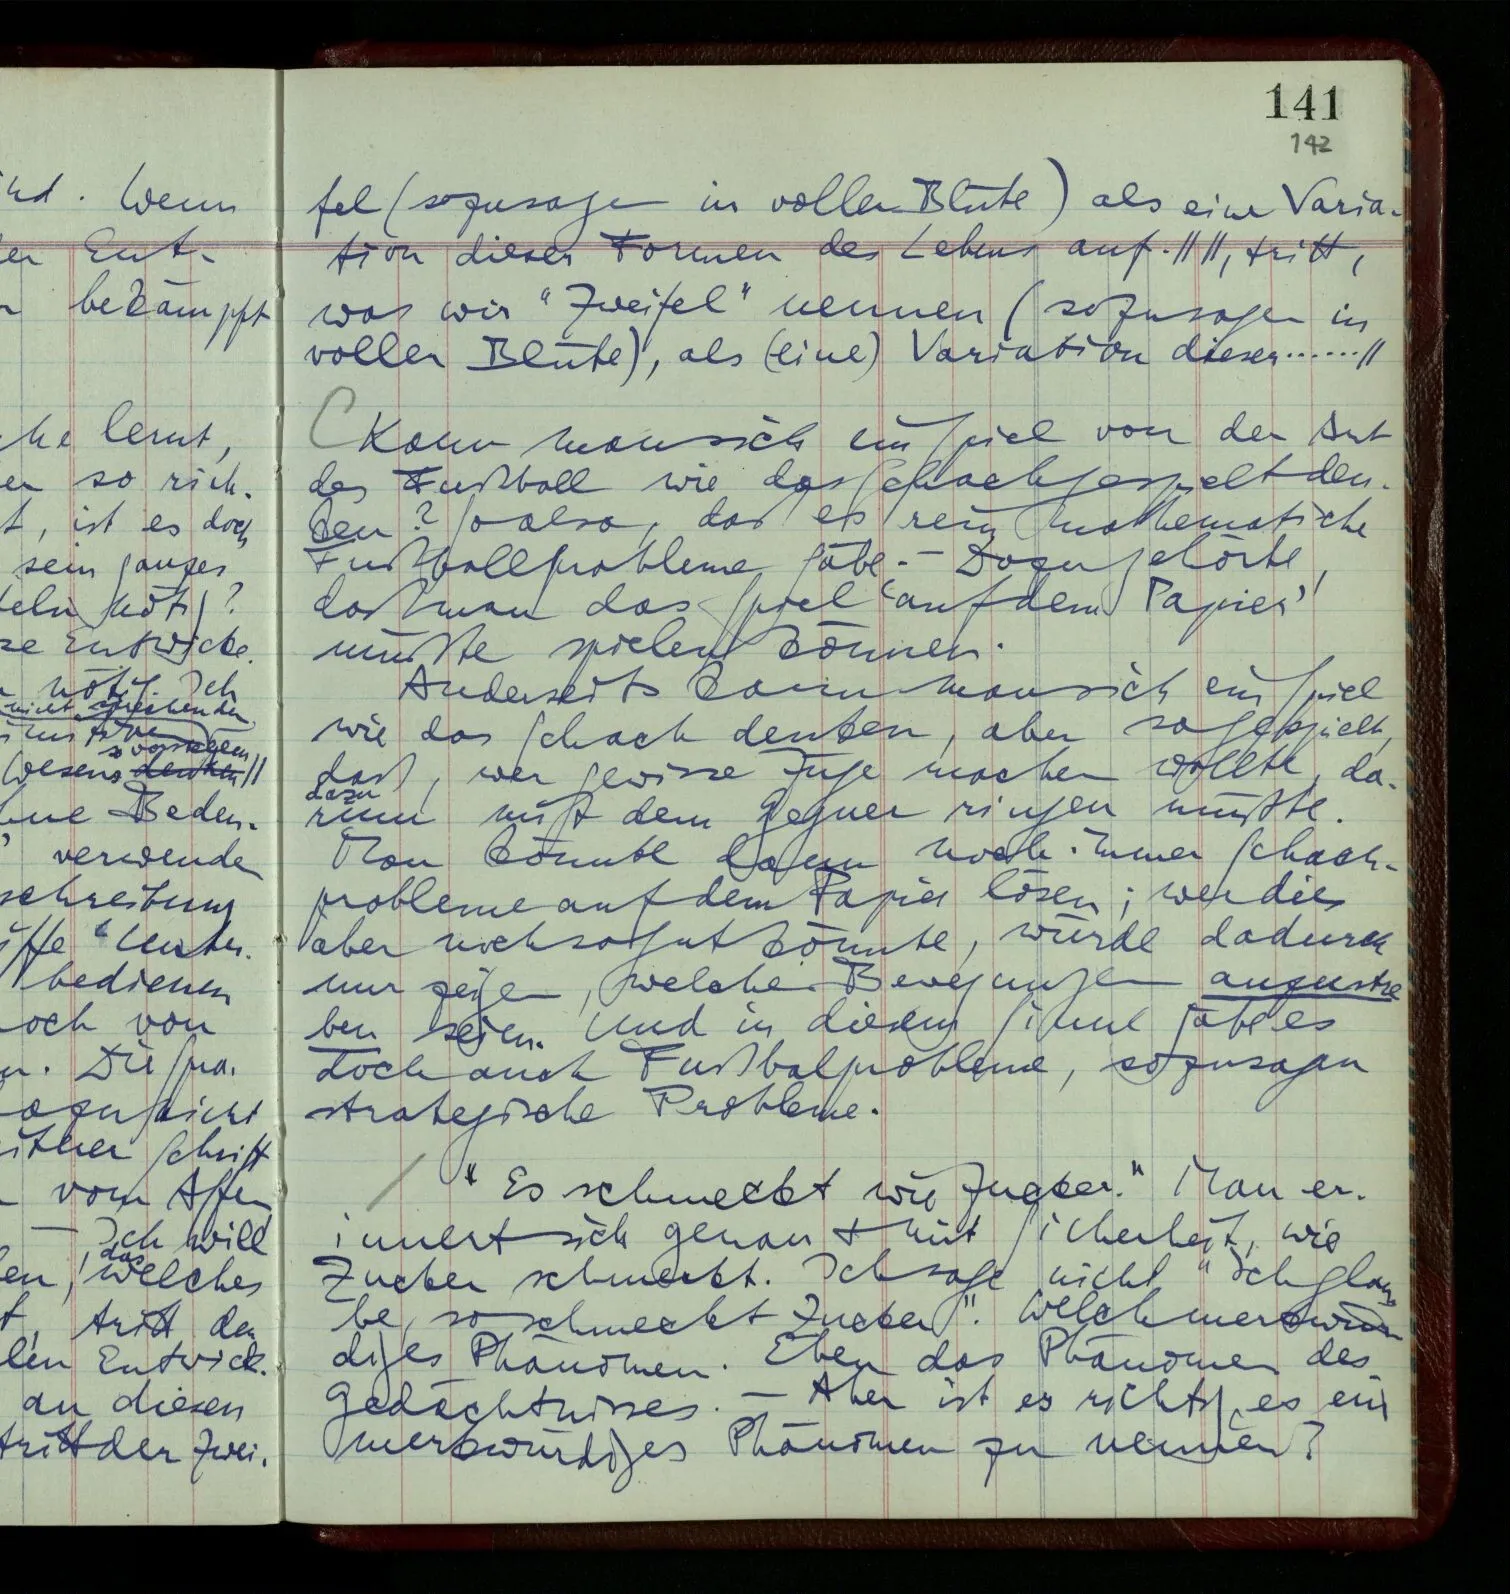 ird. Wenn
er Ent-
n bekämpft
che lernt,
er so rich-
t, ist es doch
sein ganzes
teln nötig?
se Entwicke-
n nötig. Ich
nicht sprechenden
sozusagen
Wesens denken //
hne Beden-
" verwende
schreibung
iffe "Unter-
bedienen
noch von
n. Die pra-
azu nicht
either Schrift
n vom Affen
— Ich will
das
en, welches
t, tritt der
len Entwick-
an diesen
tritt der Zwei-
141
142
fel (sozusagen in voller Blüte) als eine Varia-
tion dieser Formen des Lebens auf. // //, tritt,
was wir "Zweifel" nennen (sozusagen in
voller Blüte), als (eine) Variation dieser ...... //
Kann man sich ein Spiel von der Art
des Fußball wie das Schach gespielt den-
ken? So also, daß es rein mathematische
Fußballprobleme gäbe. — Dazu gehörte,
daß man das Spiel 'auf dem Papier'
müßte spielen können.
Anderseits kann man sich ein Spiel
wie das Schach denken, aber so gespielt,
daß, wer gewisse Züge machen wollte, da-
dazu
rum mit dem Gegner ringen müßte.
Man könnte dann noch immer Schach-
probleme auf dem Papier lösen; wer dies
aber noch so gut könnte, würde dadurch
nur zeigen, welche Bewegungen anzustre
ben seien. Und in diesem Sinne gäbe es
doch auch Fußbalprobleme, sozusagen
strategische Probleme.
/ "Es schmeckt wie Zucker." Man er-
innert sich genau & mit Sicherheit, wie
Zucker schmeckt. Ich sage nicht "Ich glau
be, so schmeckt Zucker". Welch merkwür
diges Phänomen. Eben das Phänomen des
Gedächtnisses. — Aber ist es richtig, es ein
merkwürdiges Phänomen zu nennen?